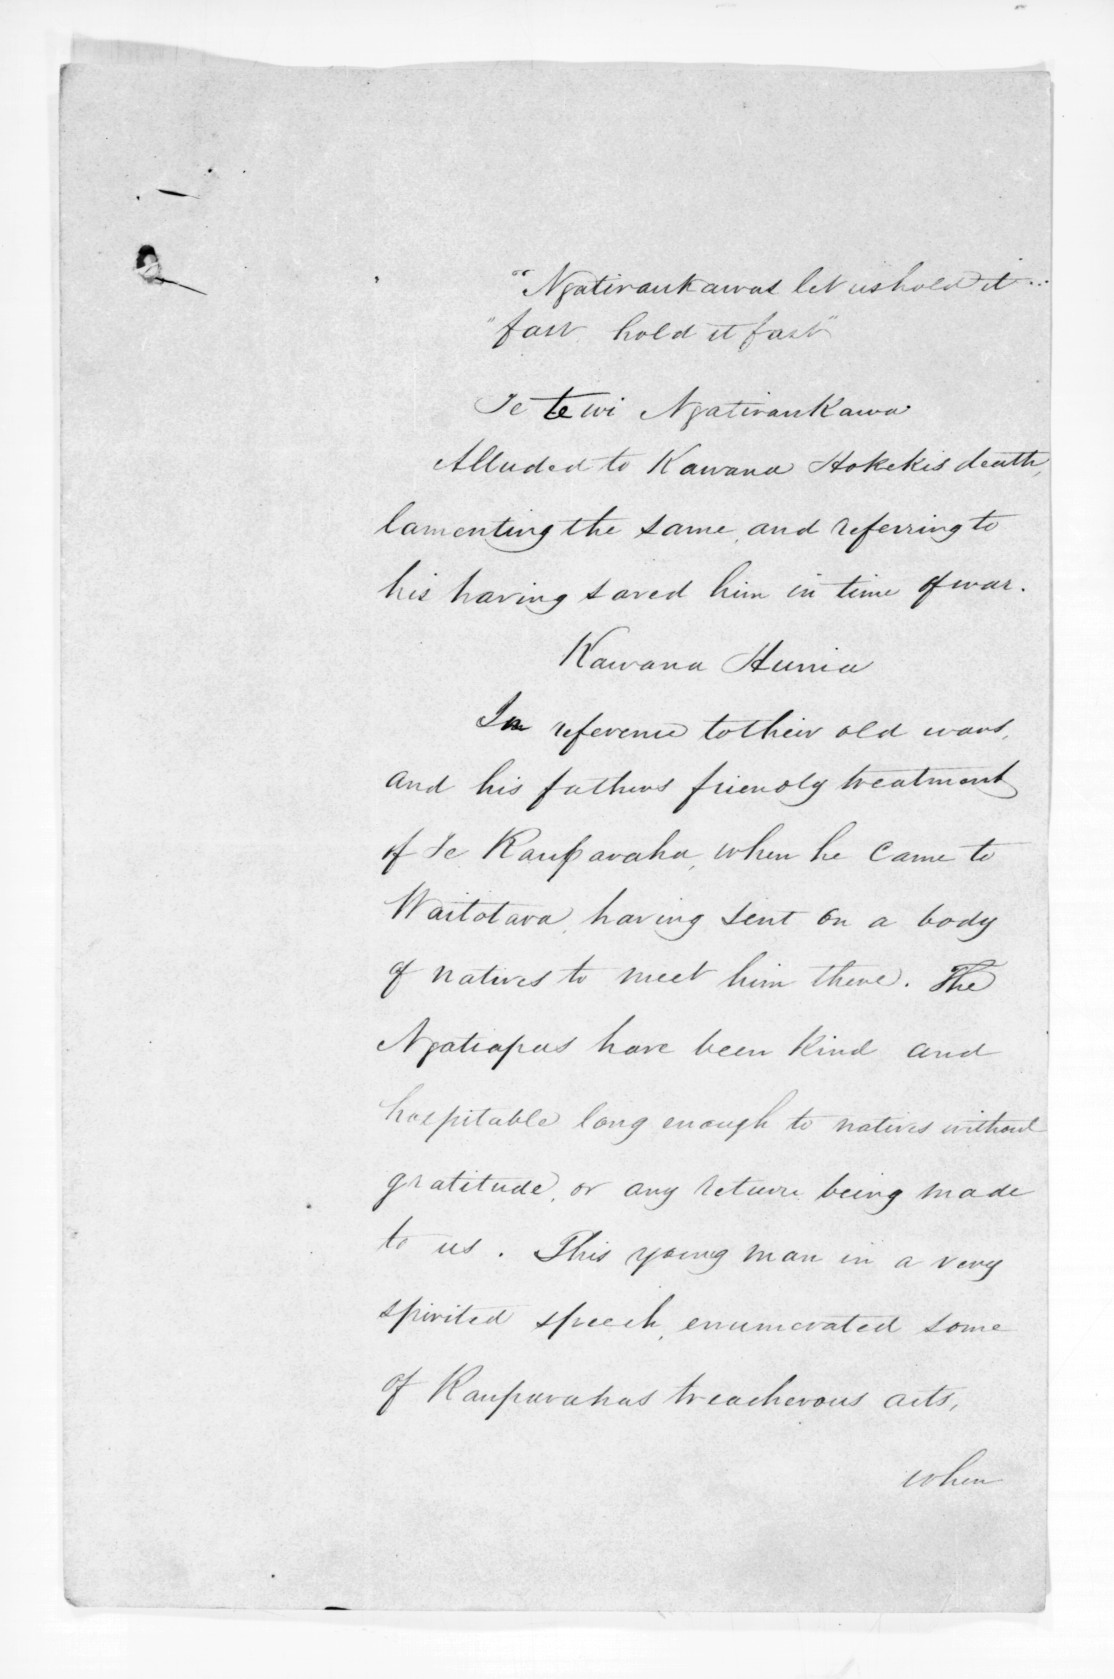 "Ngatiraukawas let us hold it
"fast hold it fast"
Te te wi Ngatiraukawa
Alluded to Kawana Hokekis death,
lamenting the same, and referring to
his having saved him in time of war.
Kawana Hunia
In reference to their old wars,
and his fathers friendly treatment
of Te Rauparaha, when he came to
Waitotara, having sent on a body
of natives to meet him there. The
Ngatiapas have been kind and
hospitable long enough to natives without
gratitude, or any return being made
to us. This young man in a very
spirited speech, enumerated some
of Rauparahas treacherous acts,
when